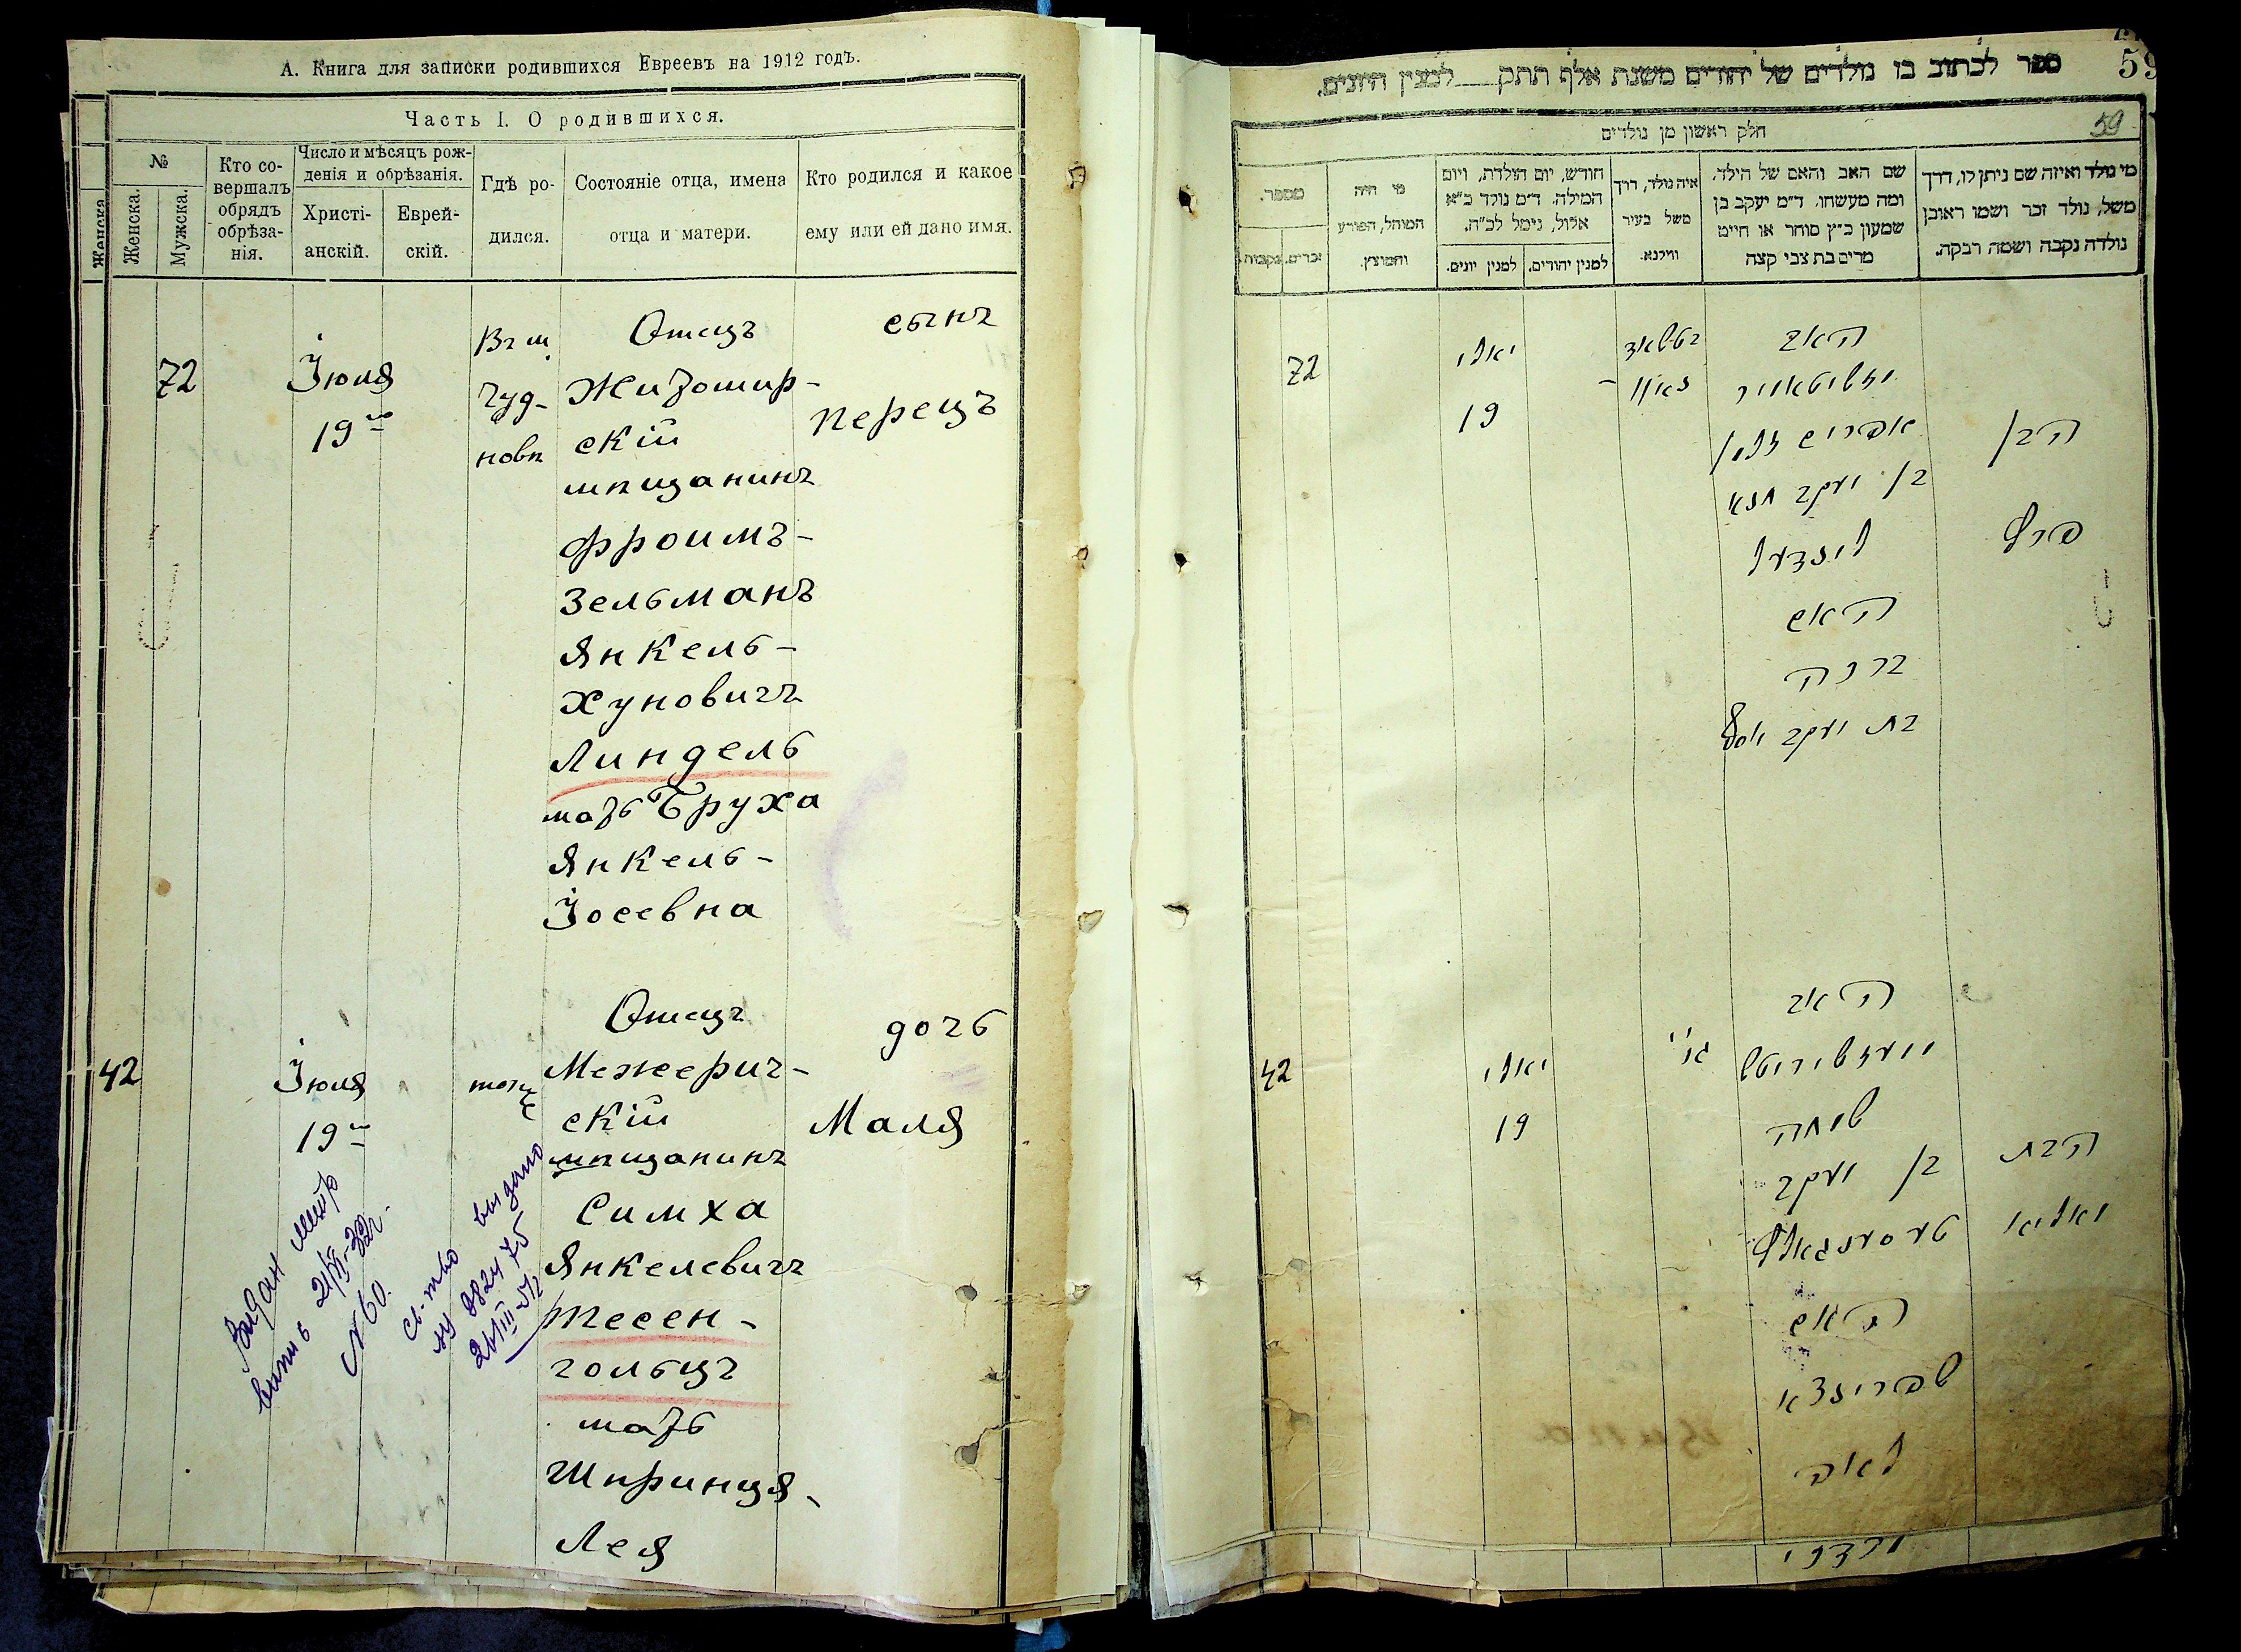 А. Книга для записки родившихся Евреевъ на 1912 годъ.
Часть I. О родившихся.
№
Женска.
Женска.
Мужска.
Кто со-
вершалъ
обрядъ
обрѣза-
нія.
Число и мѣсяцъ рож-
денія и обрѣзанія.
Христі-
анскій.
Еврей-
скій.
Гдѣ ро-
дился.
Состояніе отца, имена
отца и матери.
Кто родился и какое
ему или ей дано имя.
72
Іюля
19го
Въ м.
Чуд-
новѣ
Отецъ
Житомир-
скій
мѣщанинъ
Фроимъ-
Зельманъ
Янкель-
Хуновичъ
Линдель
мать Бруха
Янкель-
Іосевна
сынъ
Перецъ
42
Іюля
19го
тоже
Отецъ
Межерич-
скій
мѣщанинъ
Симха
Янкелевичъ
Тесен-
гольцъ
мать
Шпринця-
Лея
дочь
Маля
Выдан метр
выпись 21/VI-32г.
N 60.
св-тво выдано
21/III-51г
59
ספר לכתוב בו נולדים של יהודים משנת אלף תתק למנין היונים.
59
חלק ראשון מן נולדים
מי נולד ואיזה שם ניתן לו, דרך
משל, נולד זכר ושמו ראובן
נולדה נקבה ושמה רבקה.
שם האב והאם של הילד.
ומה מעשהו. ד״מ יעקב בן
שמעון כ״ץ סוחר או חייט
מרים בת צבי קצה
איה נולד, דרך
משל בעיר
ווילנא.
חודש, יום הולדת, ויום
המילה. ד״מ נולד כ״א
אלול, נימל לכ״ח.
למנין יהודים.
למנין יונים.
מי היה
המוהל, הפורע
והמוצץ.
מספר.
זכרים.
נקבות.
72
יאלי
19
האב
זשיטאמיר
אפרים זלמן
בן יעקב חנא
לינדעל
האם
ברכה
בת יעקב יוסף
הבן
פרץ
42
יאלי
19
האב
מעזשיריטש
שמחה
בן יעקב
האם
שפרינצא
לאה
הבת
מאליא